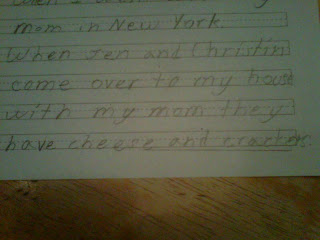 mom in New York.
When Jen and Christin
come over to my house
with my mom they
have cheese and crackers.